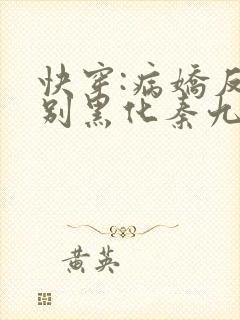 快穿:病嬌反
别黑化秦九
黄英